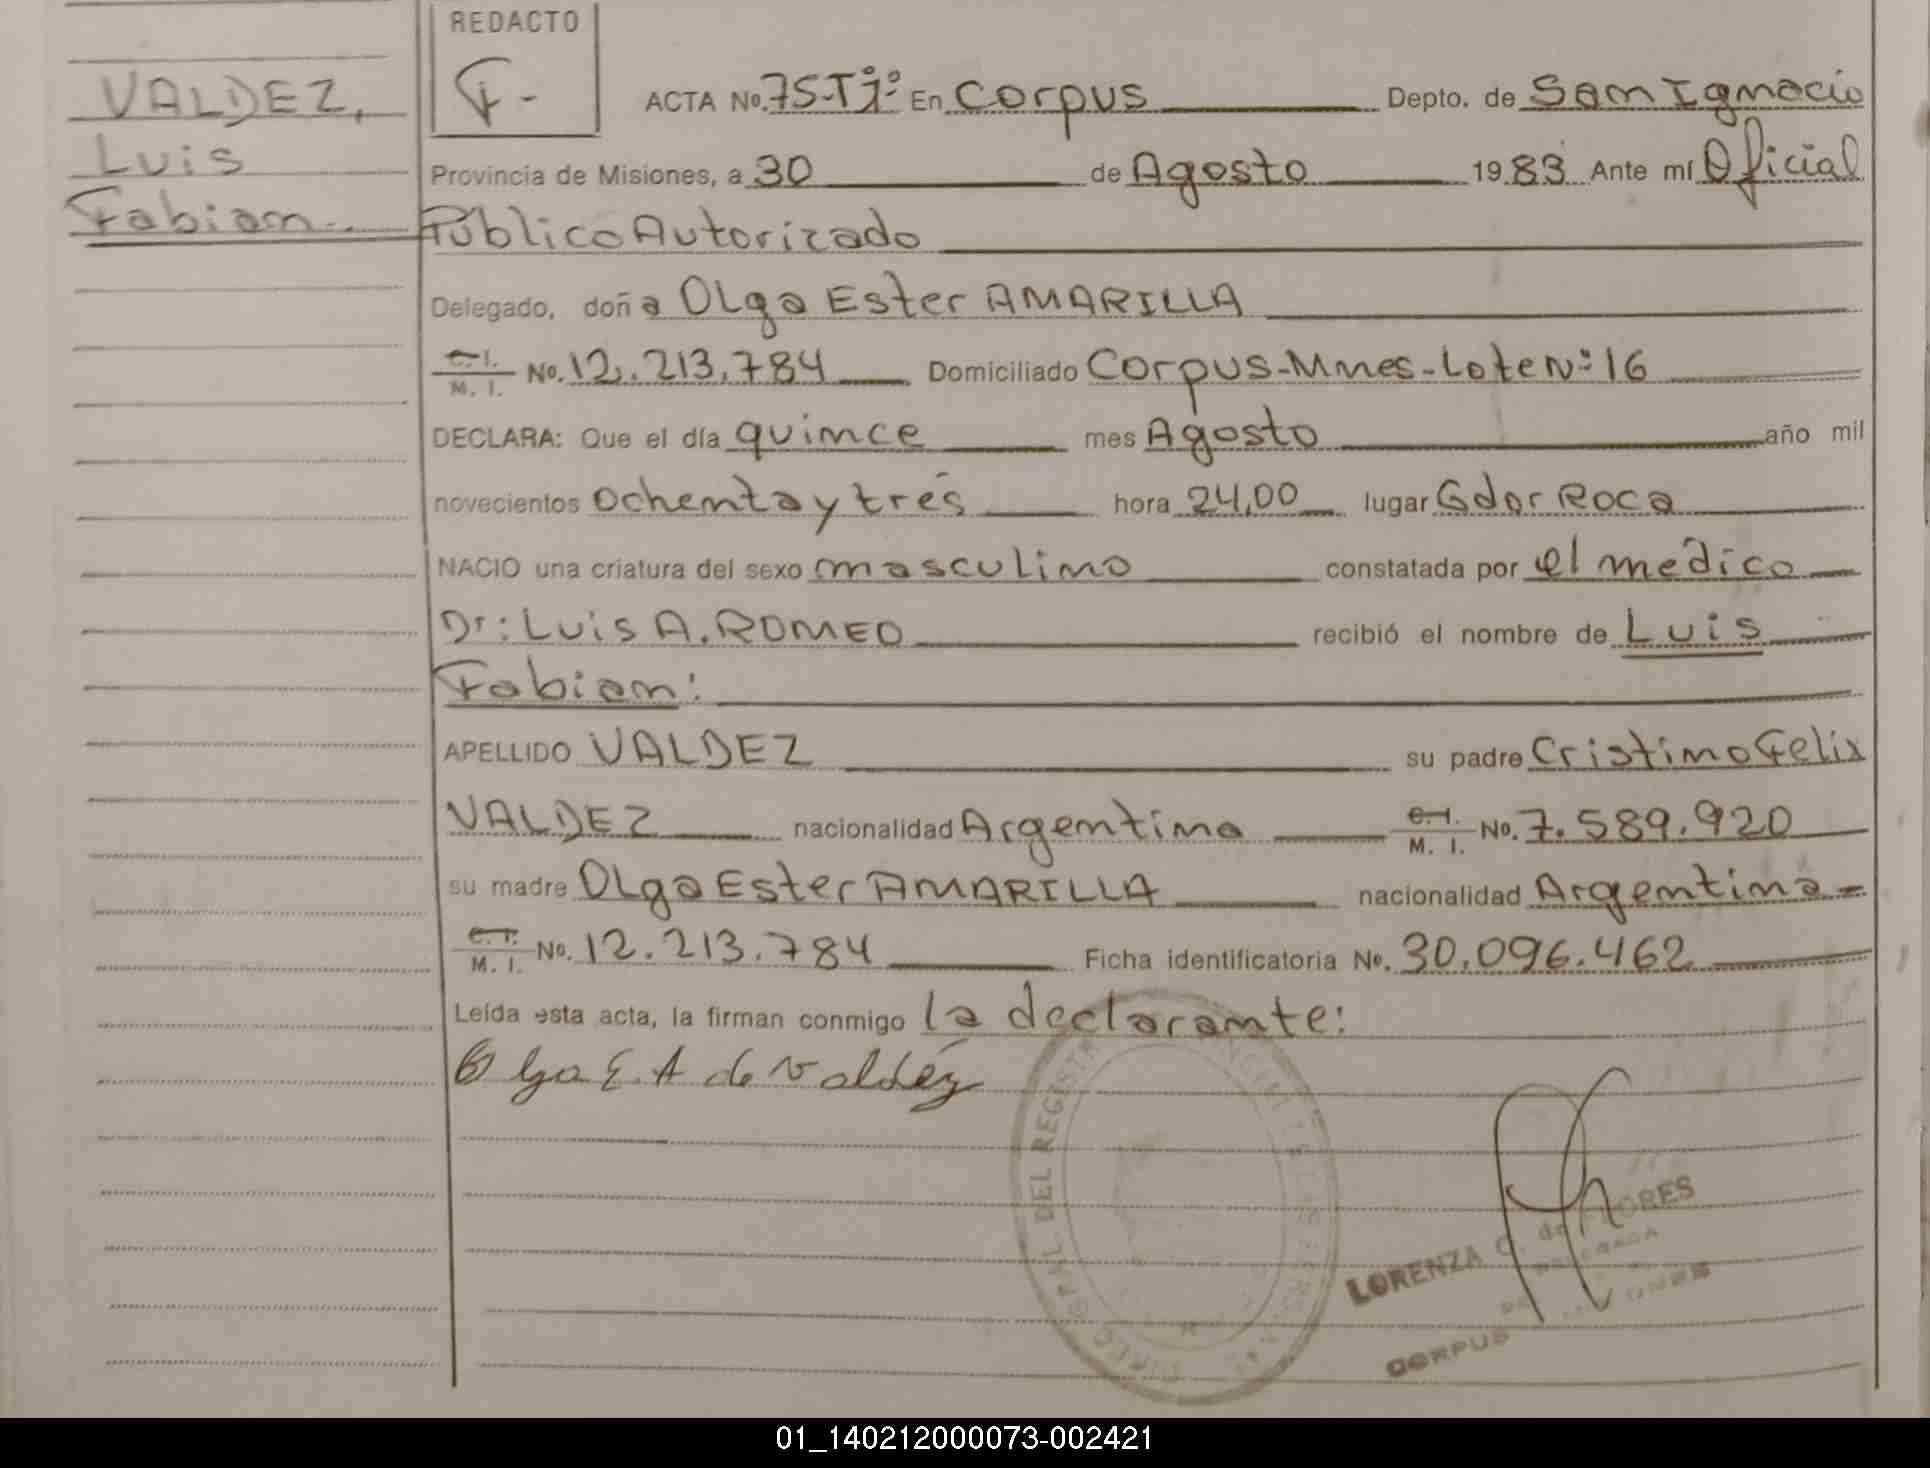 REDACTO
F-
VALDEZ,
Luis
Fabian..
ACTA No. 75-Tº1º En Corpus Depto. de San Ignacio
Provincia de Misiones, a 30 de Agosto 1983 Ante mí Oficial
Público Autorizado
Delegado, doña Olga Ester AMARILLA
C.I. M. I. No. 12.213.784 Domiciliado Corpus-Mnes-Lote Nº 16
DECLARA: Que el día quince mes Agosto año mil
novecientos ochenta y tres hora 24,00 lugar Gdor Roca
NACIO una criatura del sexo masculino constatada por el medico
Dr: Luis A. ROMEO recibió el nombre de Luis
Fabian:
APELLIDO VALDEZ su padre Cristino Felix
VALDEZ nacionalidad Argentina C.I. M. I. No. 7.589.920
su madre Olga Ester AMARILLA nacionalidad Argentina
C.I. M. I. No. 12.213.784 Ficha identificatoria No. 30.096.462
Leída esta acta, la firman conmigo la declarante:
Olga E. A de Valdéz
DEL REGISTR
LORENZA C. de FLORES
CORPUS
01_140212000073-002421